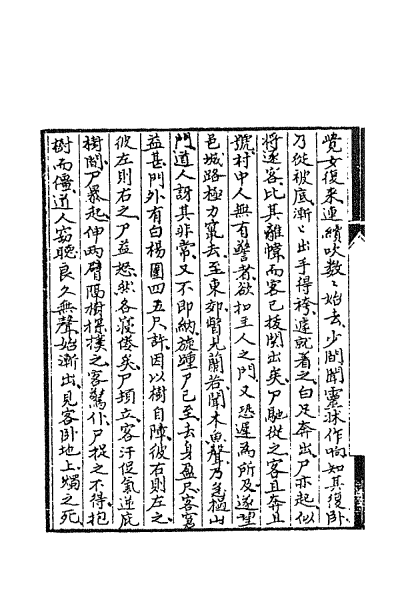 覺女復來連續吹數〻始去少間聞靈床作响知其復卧
乃從被底漸〻出手得袴遽就着之白足奔出尸亦起似
將逐客比其離幃而客已拔關出矣尸馳從之客且奔且
號村中人無有警者欲扣主人之門又恐遲為所及遂望
邑城路極力竄去至東郊瞥見蘭若聞木魚聲乃急撾山
門道人訝其非常又不即納旋踵尸已至去身盈尺客窘
益甚門外有白楊圍四五尺許因以樹自障彼右則左之
彼左則右之尸益怒然各寖倦矣尸頓立客汗促氣逆庇
樹間尸暴起伸兩臂隔樹探撲之客驚仆尸捉之不得抱
樹而僵道人竊聽良久無聲始漸出見客卧地上燭之死